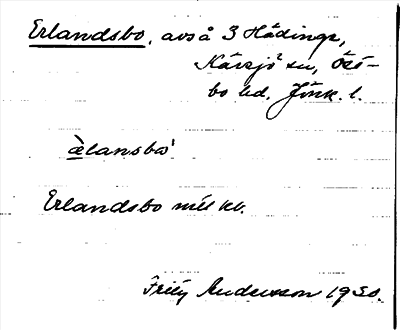 Erlandsbo, avs å 3 Hädinge,
Kävsjö sn, Öst-
bo hd. Jönk. l.
æ̀lansbo'
Erlandsbo mtl kb.
Fritz Andersson 1930.